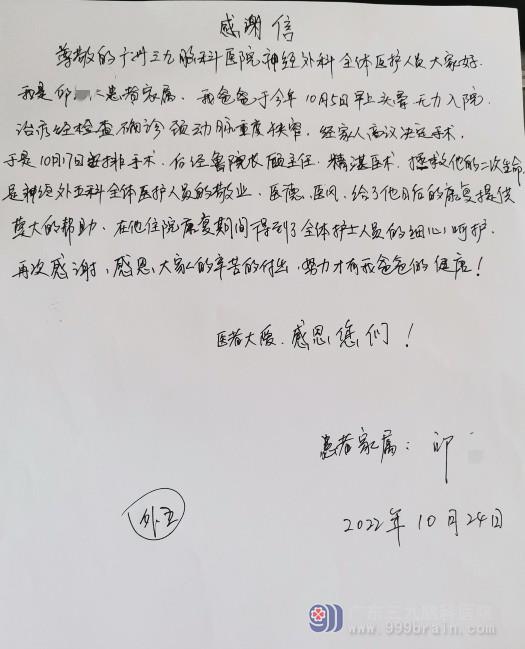 感谢信
尊敬的广州三九脑科医院神经外科全体医护人员大家好.
我是邱 患者家属. 我爸爸于今年10月5日早上头晕无力入院.
治疗经检查确诊颈动脉重度狭窄, 经家人商议决定手术,
于是10月17日安排手术, 后经鲁院长 主任, 精湛医术, 拯救他的二次生命
是神经外五科全体医护人员的敬业、医德、医风、给了他日后的康复提供
莫大的帮助、在他住院康复期间得到了全体护士人员的细心呵护.
再次感谢, 感恩, 大家的辛苦的付出, 努力才有我爸爸的健康!
医者大爱、感恩您们!
患者家属: 邱
2022年10月24日
外五
广东三九脑科医院
www.999brain.com